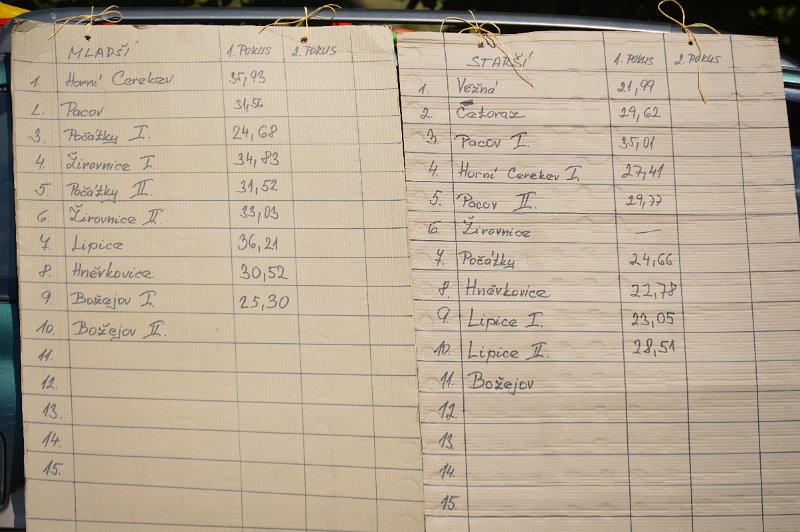 MLADŠÍ 1. POKUS 2. POKUS
1. Horní Cerekev 35,93
2. Pacov
3. Počátky I. 24,68
4. Žirovnice I. 34,83
5. Počátky II. 31,52
6. Žirovnice II. 33,03
7. Lipice 36,21
8. Hněvkovice 30,52
9. Božejov I. 25,30
10. Božejov II.
11.
12.
13.
14.
15.
STARŠÍ 1. POKUS 2. POKUS
1. Věžná 21,99
2. 29,62
3. Pacov I. 35,01
4. Horní Cerekev I. 27,41
5. Pacov II. 29,77
6. Žirovnice —
7. Počátky 24,66
8. Hněvkovice 22,78
9. Lipice I. 23,05
10. Lipice II. 28,51
11. Božejov
12.
13.
14.
15.